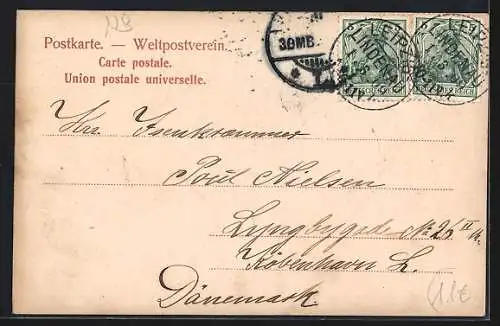 128
Postkarte. — Weltpostverein.
Carte postale.
Union postale universelle.
30MB.
LEIPZIG
LINDENAU
LEIPZIG
LINDENAU
Hrn Isenkrammer
Poul Nielsen
Lyngbygade No 26 II
København L.
Dänemark